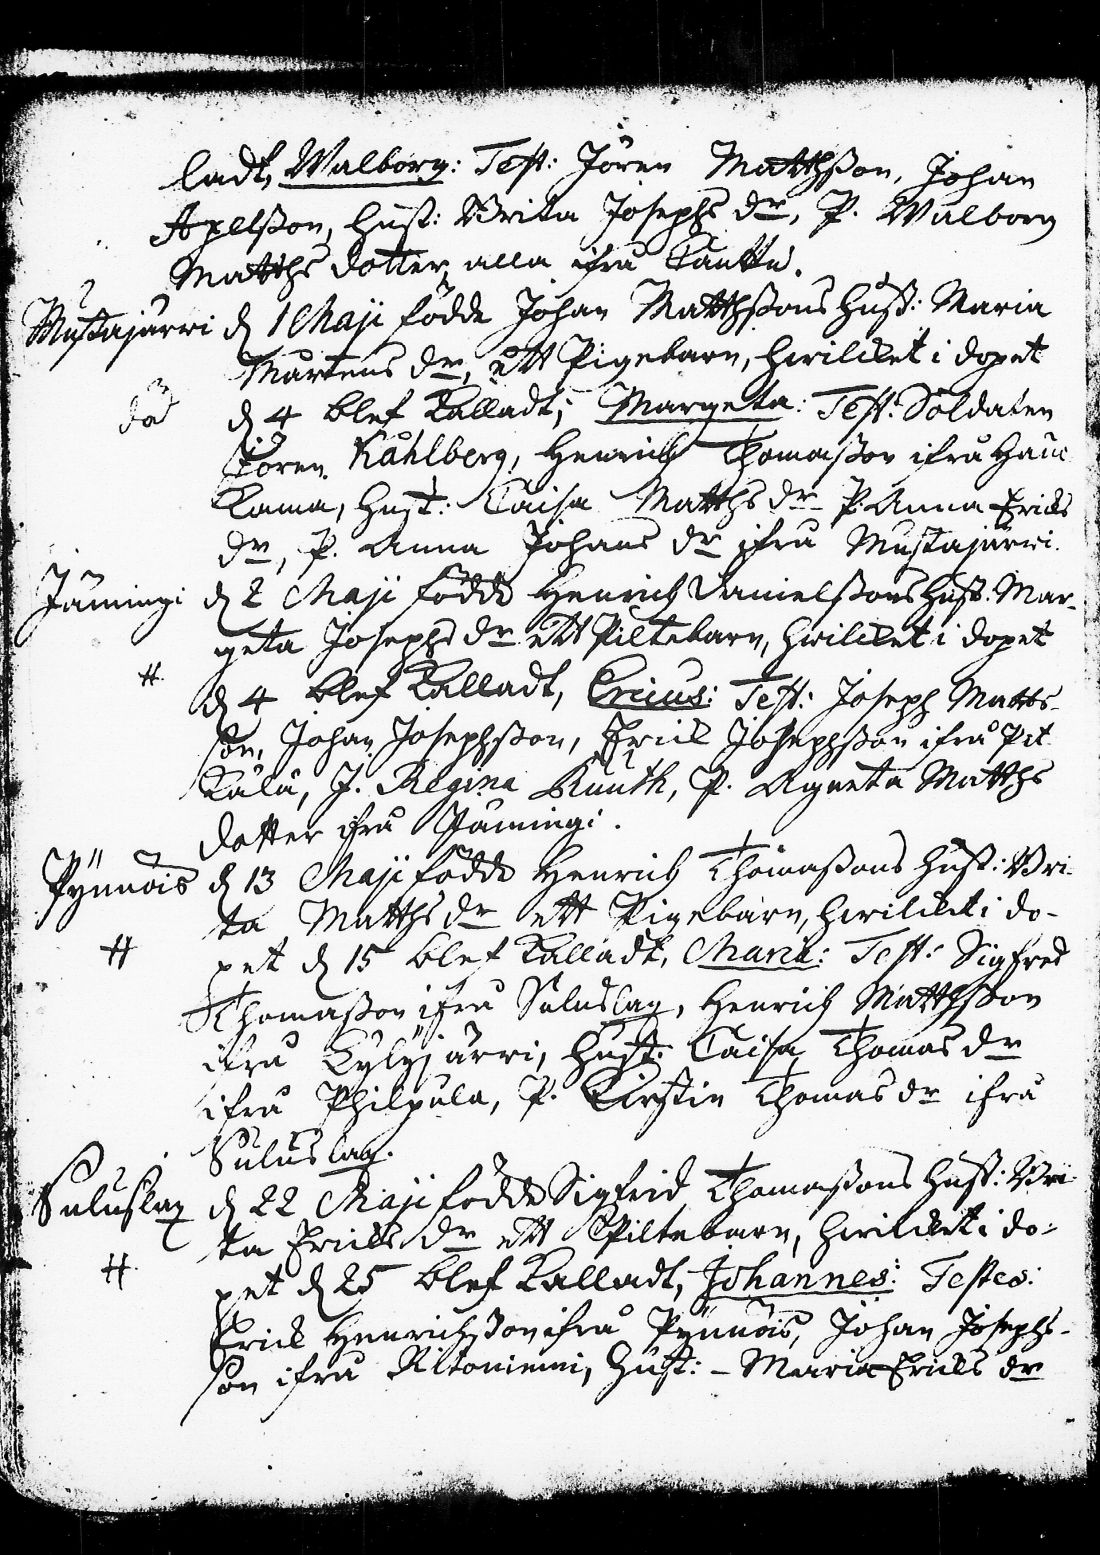 ladt, Walborg: Test: Jören Matthsson, Johan
Apelsson, Hust: Brita Josephs dr, P. Walborg
Matths dotter, alla ifrå Cautte.
Mustajärwi d 1 Maji födde Johan Matthssons Hust: Maria
Mårtens dr, ett Pigebarn, hwilcket i dopet
död d 4 blef Kalladt, Margeta: Test: Soldaten
Jören Kåhlberg, Henrich Thomasson ifrå Hau
Kama, Hust: Caisa Matths dr P. Anna Ericks
dr, P. Anna Johans dr ifrå Mustajärwi.
Jämingi d 2 Maji födde Henrich Danielssons Hust. Mar-
geta Josephs dr ett Piltebarn, hwilcket i dopet
# d 4 blef Kalladt, Ericus: Test: Joseph Matts-
son, Johan Josephsson, Erick Josephsson ifrå Pit
Kälä, J. Regina Kunth, P. Agneta Matths
dotter ifrå Jämingi.
Pynnöis d 13 Maji födde Henrich Thomassons Hust: Bri-
ta Matths dr ett Pigebarn, hwilcket i do-
# pet d 15 blef Kalladt, Maria: Test: Sigfred
Thomasson ifrå Suluslax, Henrich Matthsson
ifrå Kylyjärwi, Hust: Caisa Thomas dr
ifrå Philpula, P. Kirstin Thomas dr ifrå
Suluslax.
Suluslax d 22 Maji födde Sigfrid Thomassons Hust: Bri
ta Ericks dr ett Piltebarn, hwilcket i do-
# pet d 25 blef Kalladt, Johannes: Testes:
Erick Henrichsson ifrå Pynnöis, Johan Josephs-
son ifrå Ritoniemi, Hust: - Maria Ericks dr